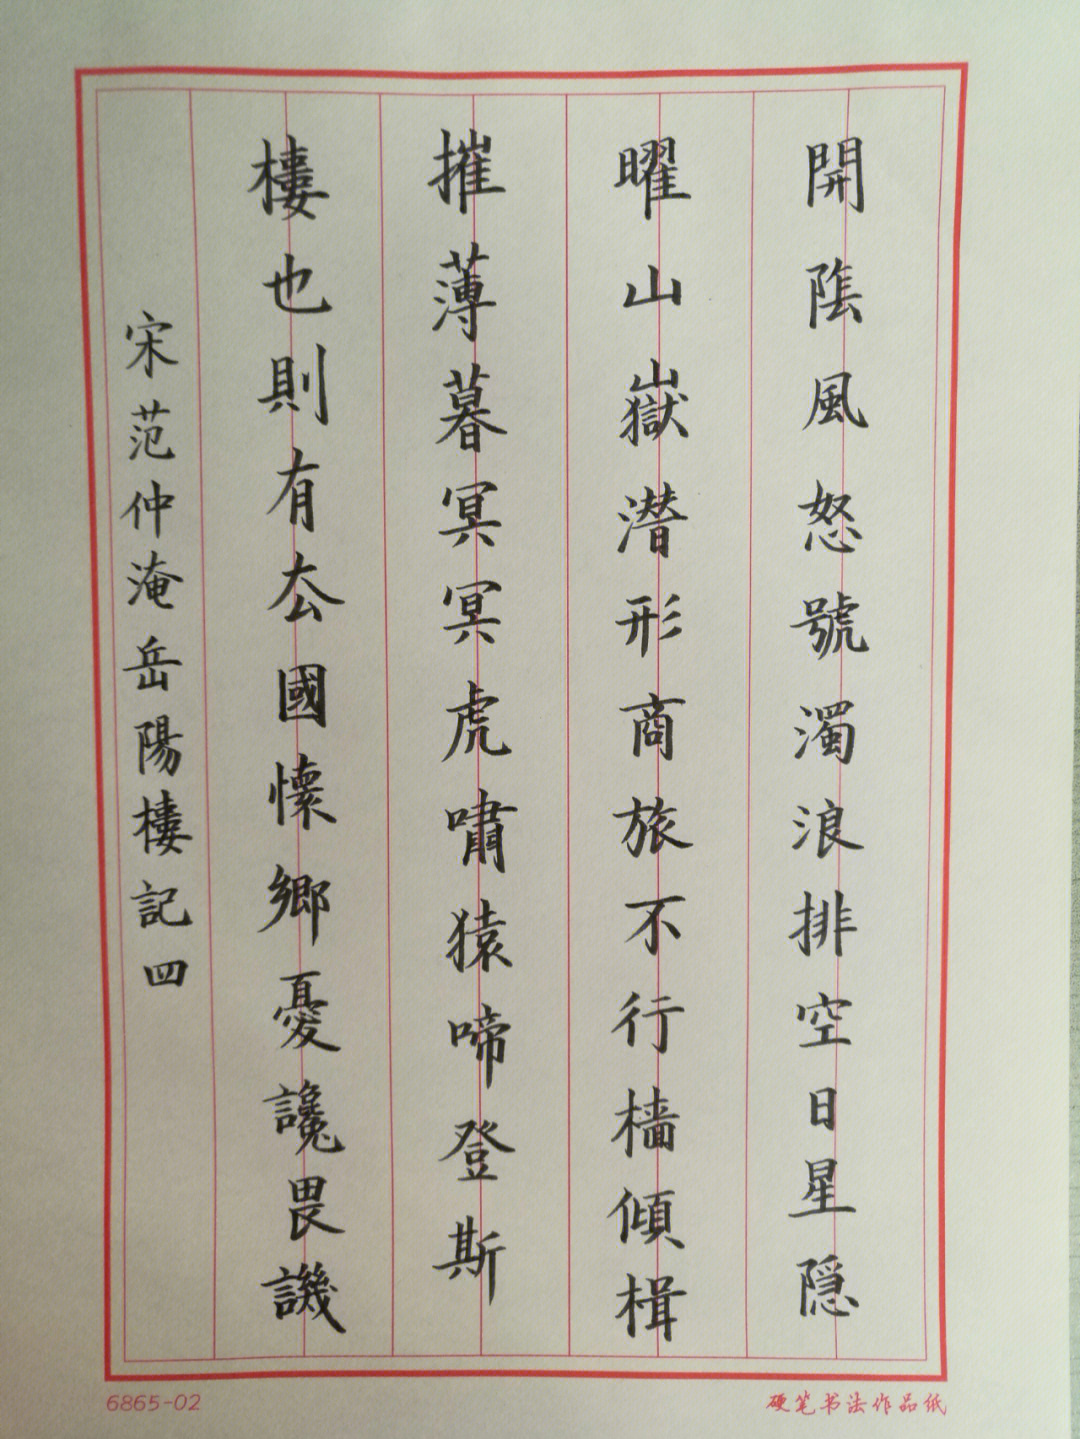 開陰風怒號濁浪排空日星隱
曜山嶽潛形商旅不行檣傾楫
摧薄暮冥冥虎嘯猿啼登斯
樓也則有厺國懷鄉憂讒畏譏
宋范仲淹岳陽樓記四
6865-02
硬笔书法作品纸